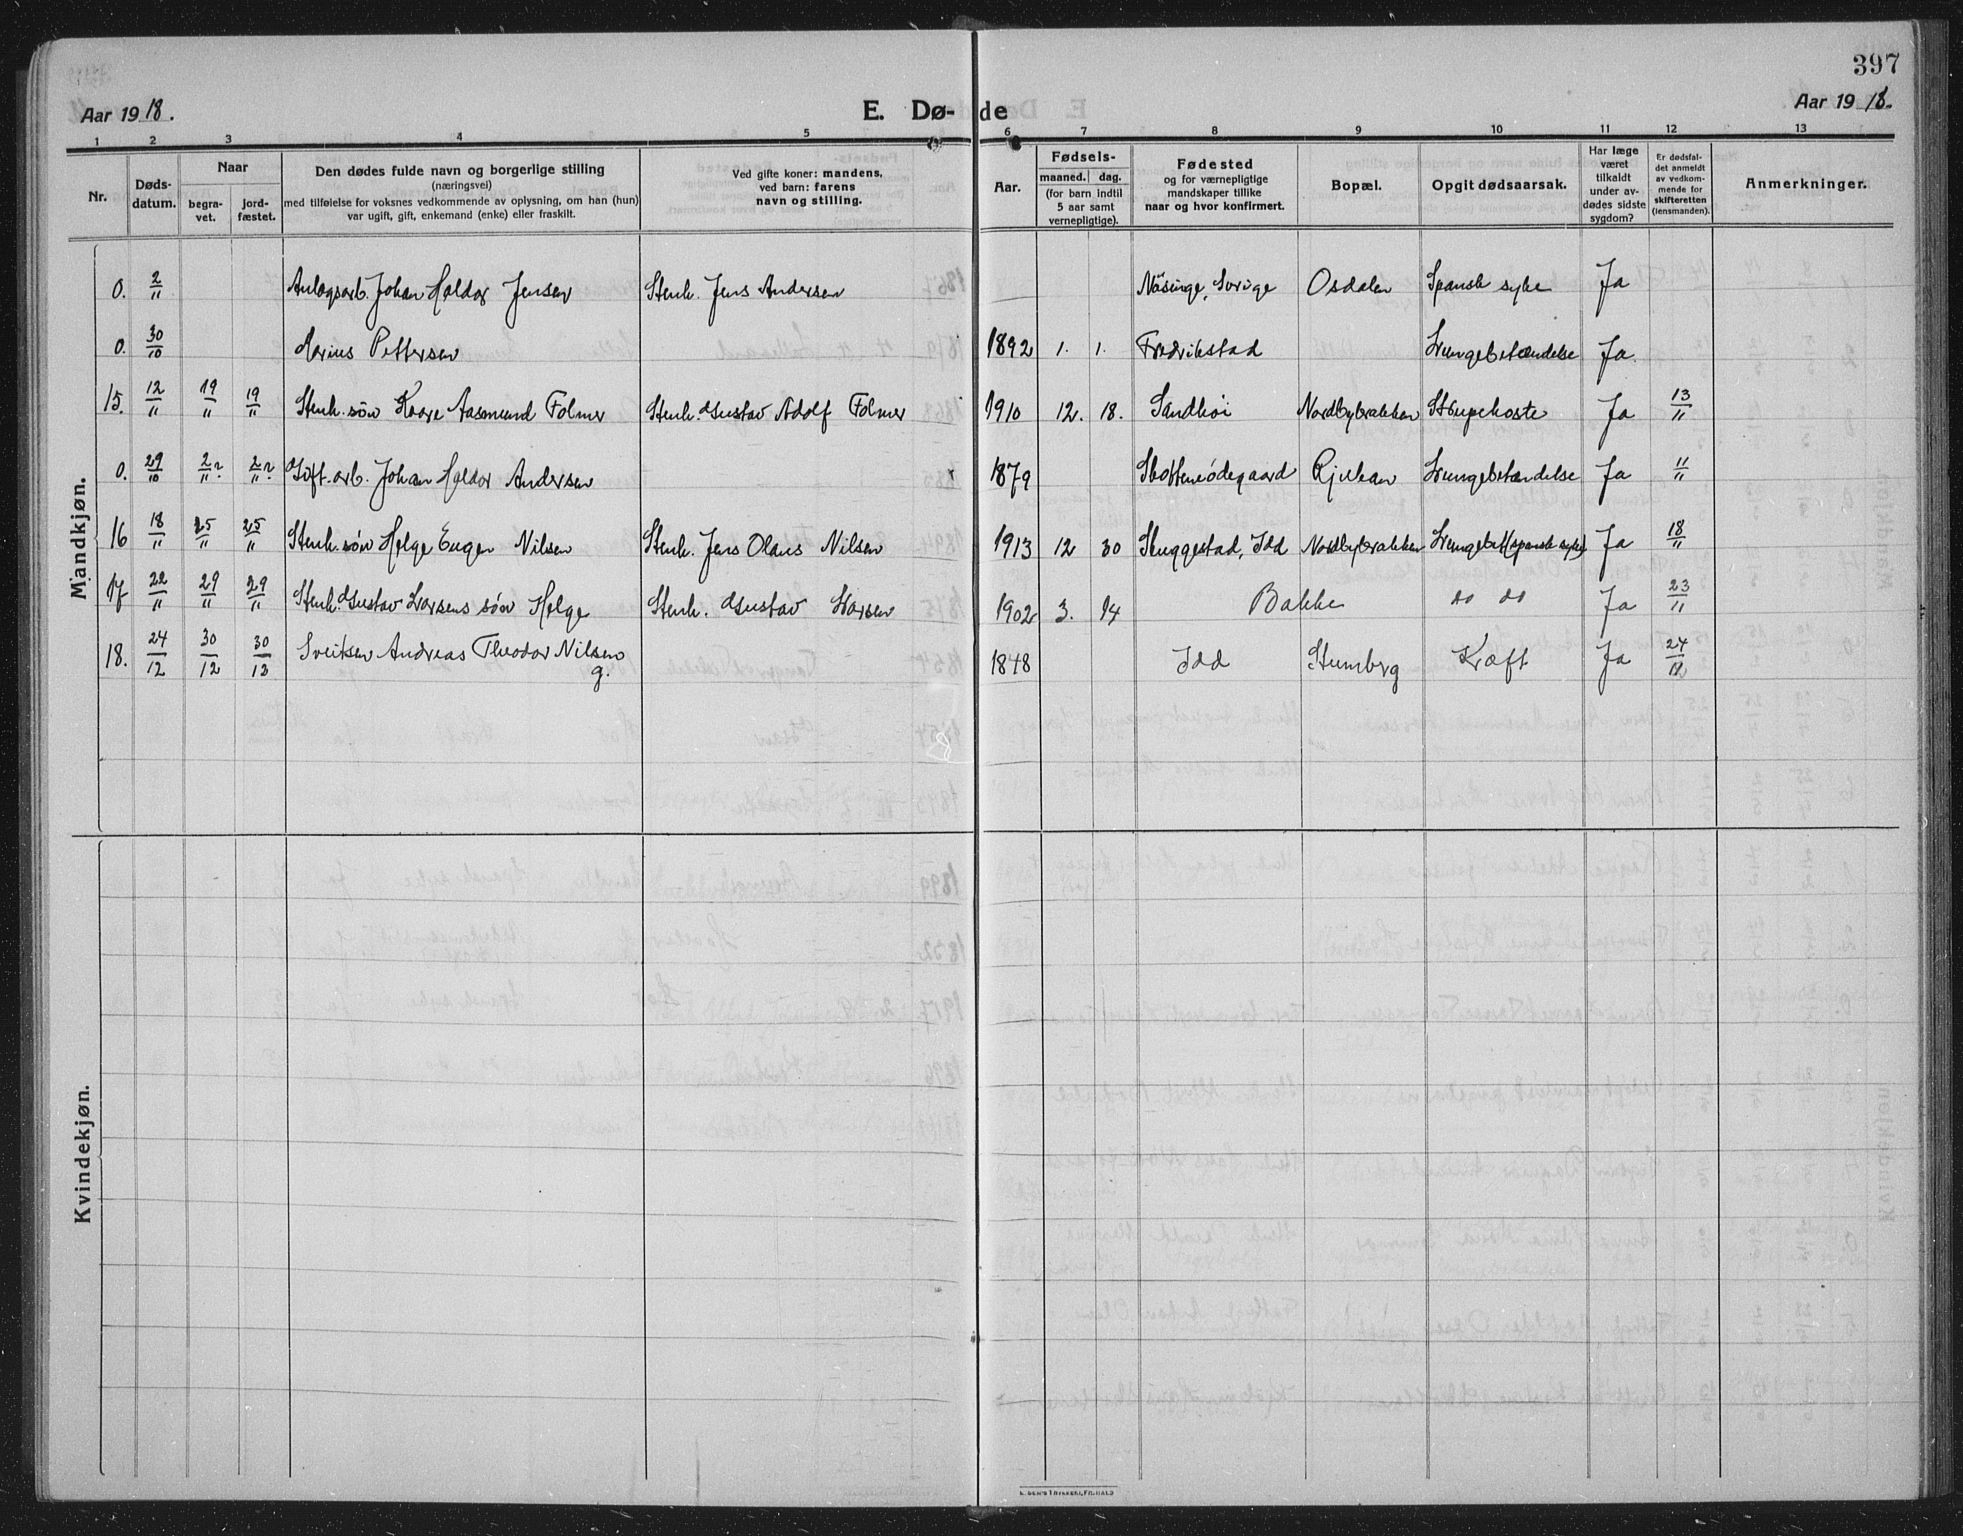 397
Aar 1918.
E. Dø-
de
Aar 1918.
1 2 3 4 5 6 7 8 9 10 11 12 13
Nr.
Døds-
datum.
Naar
begra-
vet.
jord-
fæstet.
Den dødes fulde navn og borgerlige stilling
(næringsvei)
med tilføielse for voksnes vedkommende av oplysning, om han (hun)
var ugift, gift, enkemand (enke) eller fraskilt.
Ved gifte koner: mandens,
ved barn: farens
navn og stilling.
Aar.
Fødsels-
maaned. dag.
(for barn indtil
5 aar samt
vernepligtige).
Fødested
og for værnepligtige
mandskaper tillike
naar og hvor konfirmert.
Bopæl.
Opgit dødsaarsak.
Har læge
været
tilkaldt
under av-
dødes sidste
sygdom?
Er dødsfal-
det anmeldt
av vedkom-
mende for
skifteretten
(lensmanden).
Anmerkninger.
Mandkjøn.
0. 2/11 Anlægsarb. Johan Haldor Jensen Stenh. Jens Andersen Näsinge, Sverige Osdalen Spansk syke Ja
0. 30/10 Marius Pettersen 1892 1. 1. Fredrikstad Lungebetændelse Ja.
15. 12/11 19/11 19/11 Stenh. søn Kaare Aasmund Folmer Stenh. Gustav Adolf Folmer 1910 12. 18. Sandhøi Nordbybrakken Strupehoste Ja 13/11
0. 29/10 2/11? 2/11? Gift. arb. Johan Haldor Andersen 1879 Skotteneødegaard Rjukan Lungebetændelse Ja 11/11
16 18/11 25/11 25/11 Stenh. søn Helge Eugen Nilsen Stenh. Jens Olaus Nilsen 1913 12 30 Skuggestad, Idd Nordbybrakken Lungebet(spansk syke) Ja 18/11
17 22/11 29/11 29/11 Stenh. Gustav Larsens søn Helge Stenh. Gustav Larsen 1902 3. 14 Bakke do do Ja 23/11
18. 24/12 30/12 30/12 Sveitser Andreas Theodor Nilsen 1848 Idd Stumberg Kræft Ja 24/12
g.
Kvindekjøn.